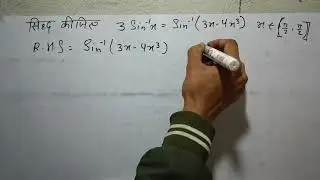 सिद्ध कीजिए 3 Sin⁻¹x = Sin⁻¹(3x-4x³) x ∈ [π/2, π/2]
R.H.S = Sin⁻¹(3x-4x³)